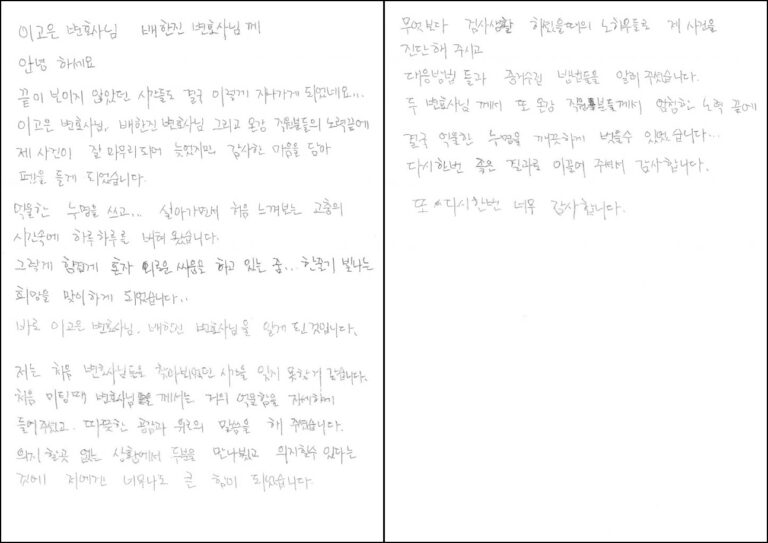 이고은 변호사님 배한진 변호사님께
안녕하세요
끝이 보이지 않았던 시간들도 결국 이렇게 지나가게 되었네요...
이고은 변호사님, 배한진변호사님 그리고 온강 직원분들의 노력끝에
제 사건이 잘 마무리되어 늦었지만, 감사한 마음을 담아
펜을 들게 되었습니다.
억울한 누명을 쓰고... 살아가면서 처음 느껴보는 고충의
시간속에 하루하루를 버텨 왔습니다.
그렇게 힘겹게 혼자 외로운 싸움을 하고 있는 중... 한줄기 빛나는
희망을 맞이하게 되었습니다..
바로 이고은변호사님, 배한진 변호사님을 알게 된것입니다.
저는 처음 변호사님들을 찾아뵈었던 시간을 잊지 못할거 같습니다.
처음 미팅때 변호사님들께서는 저의 억울함을 자세하게
들어주셨고. 따뜻한 공감과 위로의 말씀을 해 주셨습니다.
의지 할곳 없는 상황에서 두분을 만나뵙고 의지할수 있다는
것에 저에겐 너무나도 큰 힘이 되었습니다.
무엇보다 검사생활 하셨을때의 노하우들로 제 사건을
진단해 주시고
대응방법 들과 증거수집 방법들을 알려 주셨습니다.
두 변호사님께서 또 온강 직원분들께서 엄청난 노력 끝에
결국 억울한 누명을 깨끗하게 벗을수 있었습니다...
다시한번 좋은 결과로 이끌어 주셔서 감사합니다.
또 다시한번 너무 감사합니다.